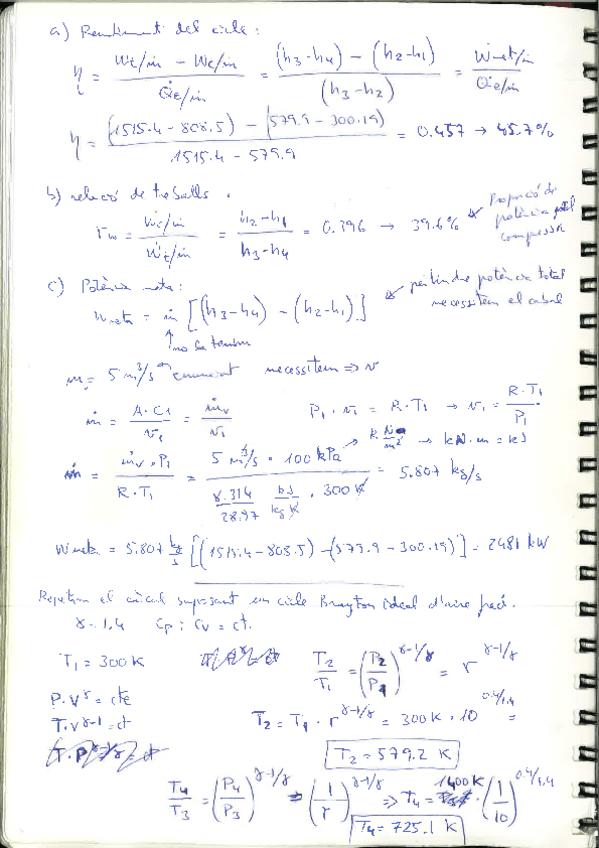 a) Rendiment del cicle :
η = (Ẇt/ṁ − Ẇc/ṁ) / (Q̇e/ṁ) = ((h3−h4) − (h2−h1)) / (h3−h2) = (Ẇnet/ṁ) / (Q̇e/ṁ)
η = ((1515.4 − 808.5) − (579.9 − 300.19)) / (1515.4 − 579.9) = 0.457 → 45.7%
b) relació de treballs .
rw = (Ẇc/ṁ) / (Ẇt/ṁ) = (h2−h1) / (h3−h4) = 0.396 → 39.6%
Proporció de
potència pel
compressor
c) Potència neta :
Wneta = ṁ [(h3−h4) − (h2−h1)]
per tindre potència total
necessitem el cabal
no la tenim
5 m³/s necessitem ⇒ v
ṁ = A·C1 / v1 = ṁv / v1
P1 · v1 = R·T1 → v1 = R·T1 / P1
ṁ = ṁv · P1 / R·T1 = 5 m³/s · 100 kPa / (8.314/28.97 kJ/kg K · 300 K) = 5.807 kg/s
→ kN·m = kJ
Wneta = 5.807 kg/s [(1515.4 − 808.5) − (579.9 − 300.19)] = 2481 kW
Repetim el càlcul suposant un cicle Brayton ideal d'aire fred.
γ = 1.4 Cp ; Cv = ct.
T1 = 300 K
T2/T1 = (P2/P1)^γ-1/γ = r^γ-1/γ
P·v^γ = cte
T·v^γ-1 = ct
T2 = T1 · r^γ-1/γ = 300 K · 10^0.4/1.4 =
T2 = 579.2 K
T4/T3 = (P4/P3)^γ-1/γ = (1/r)^γ-1/γ ⇒ T4 = 1400 K · (1/10)^0.4/1.4
T4 = 725.1 K